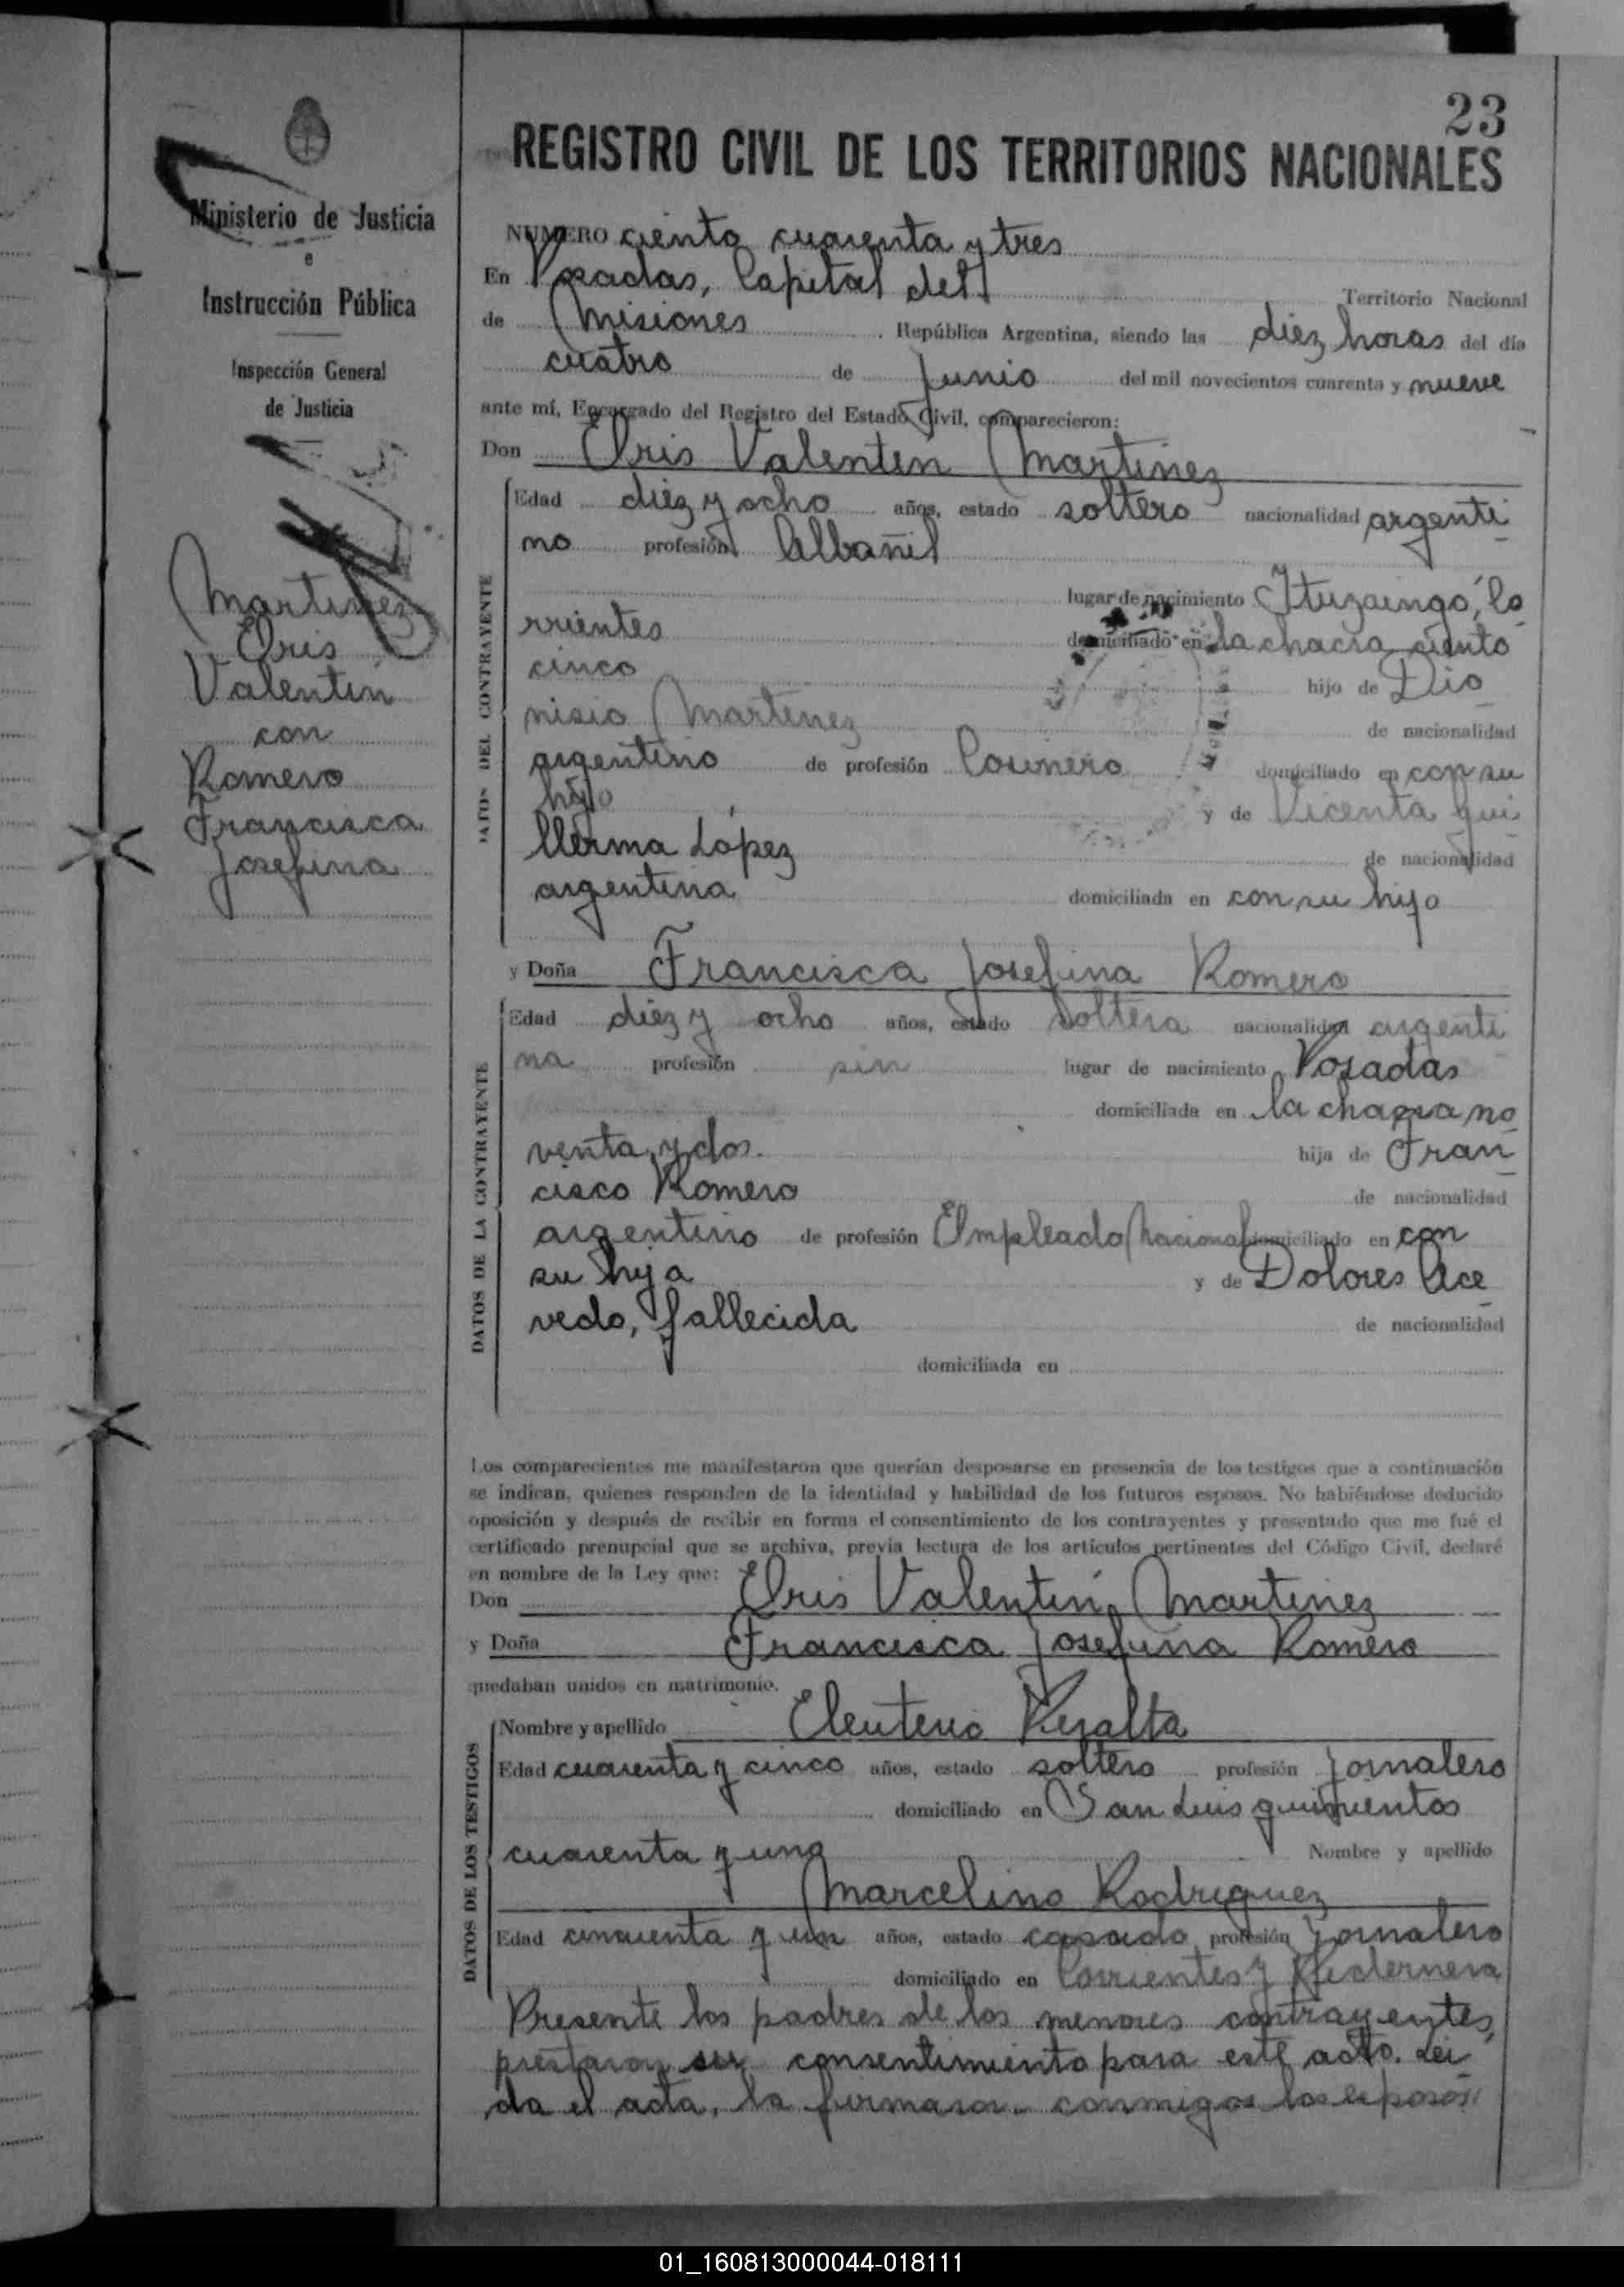 23
REGISTRO CIVIL DE LOS TERRITORIOS NACIONALES
Ministerio de Justicia
e
Instrucción Pública
Inspección General
de Justicia
Martinez
Elris
Valentin
con
Romero
Francisca
Josefina
NUMERO ciento cuarenta y tres
En Posadas, Capital del Territorio Nacional
de Misiones República Argentina, siendo las diez horas del día
cuatro de Junio del mil novecientos cuarenta y nueve
ante mí, Encargado del Registro del Estado Civil, comparecieron:
Don Elris Valentin Martinez
DATOS DEL CONTRAYENTE
Edad diez y ocho años, estado soltero nacionalidad argenti
no profesión Albañil
lugar de nacimiento Ituzaingó, Co
rrientes domiciliado en la chacra ciento
cinco hijo de Dio
nisio Martinez de nacionalidad
argentino de profesión Cosinero domiciliado en con su
hijo y de Vicenta Gui
llerma López de nacionalidad
argentina domiciliada en con su hijo
y Doña Francisca Josefina Romero
DATOS DE LA CONTRAYENTE
Edad diez y ocho años, estado soltera nacionalidad argenti
na profesión sin lugar de nacimiento Posadas
domiciliada en la chacra no
venta y dos. hija de Fran
cisco Romero de nacionalidad
argentino de profesión Empleado Nacional domiciliado en con
su hija y de Dolores Ace
vedo, fallecida de nacionalidad
domiciliada en
Los comparecientes me manifestaron que querían desposarse en presencia de los testigos que a continuación
se indican, quienes responden de la identidad y habilidad de los futuros esposos. No habiéndose deducido
oposición y después de recibir en forma el consentimiento de los contrayentes y presentado que me fué el
certificado prenupcial que se archiva, previa lectura de los artículos pertinentes del Código Civil, declaré
en nombre de la Ley que:
Don Elris Valentin Martinez
y Doña Francisca Josefina Romero
quedaban unidos en matrimonio.
DATOS DE LOS TESTIGOS
Nombre y apellido Eleuterio Peralta
Edad cuarenta y cinco años, estado soltero profesión Jornalero
domiciliado en San Luis quinientos
cuarenta y uno Nombre y apellido
Marcelino Rodriguez
Edad cincuenta y un años, estado casado profesión Jornalero
domiciliado en Corrientes y Pedernera
Presente los padres de los menores contrayentes,
prestaron su consentimiento para este acto. Lei
da el acta, la firmaron conmigo los esposos
01_160813000044-018111